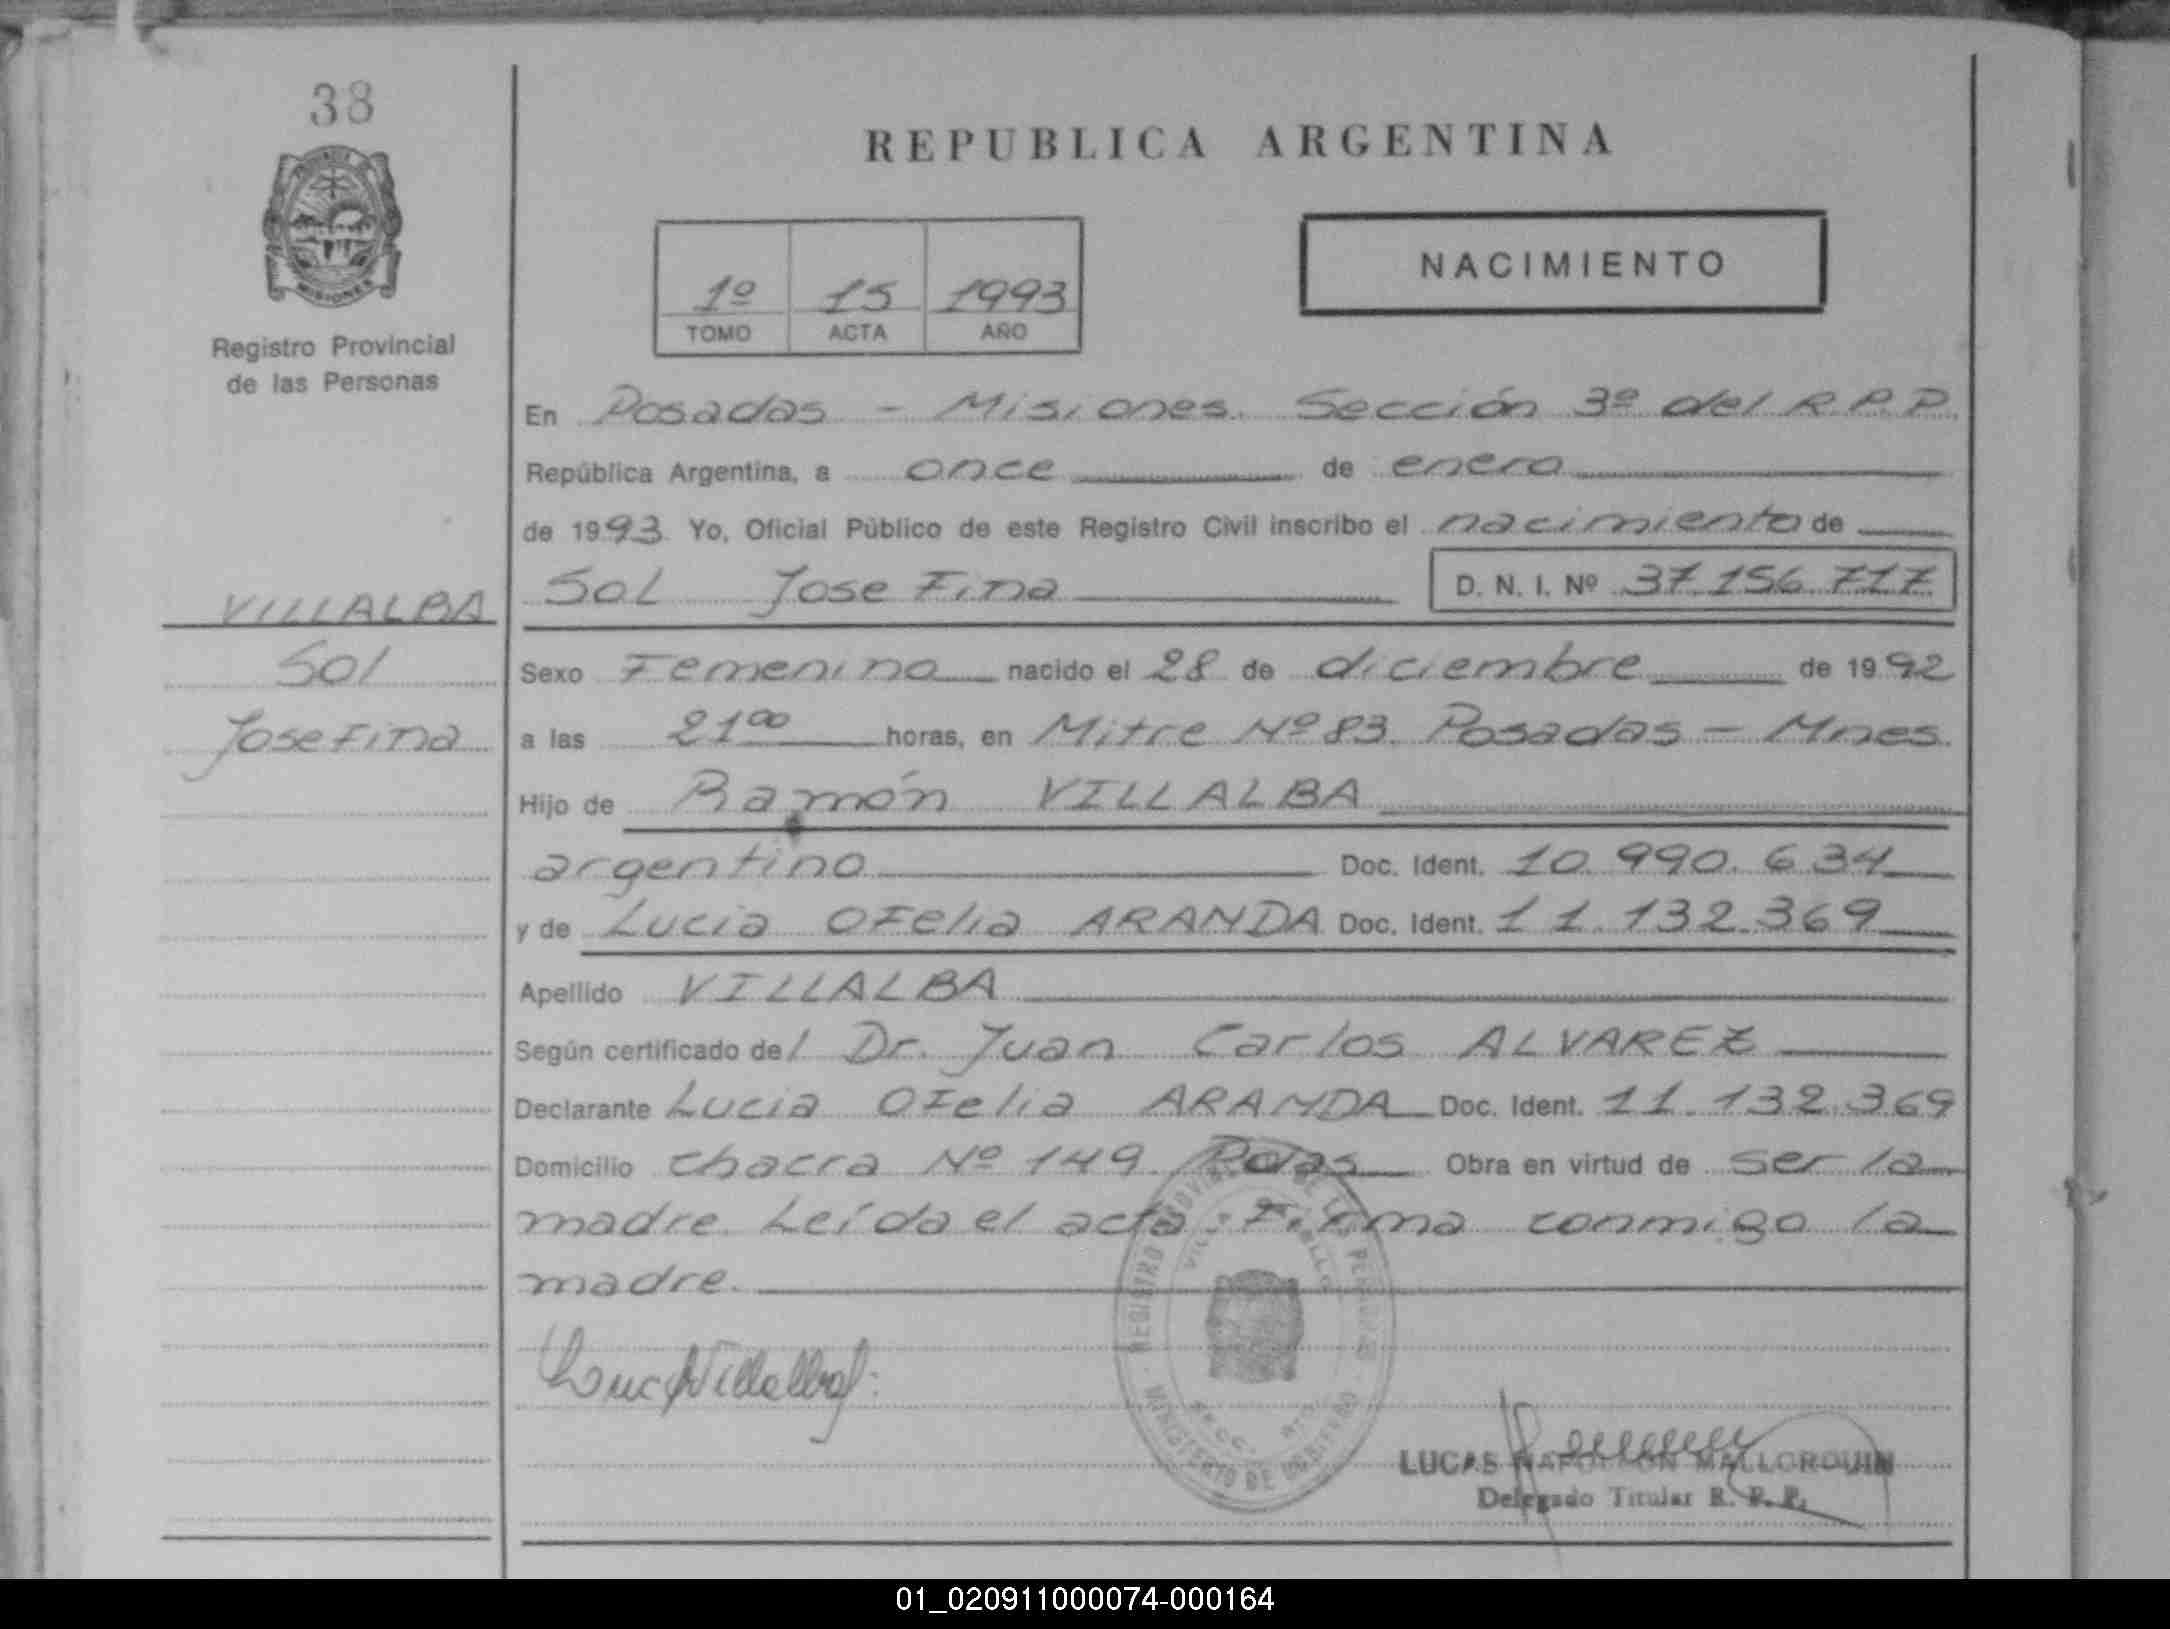 38
MISIONES
Registro Provincial
de las Personas
VILLALBA
Sol
Josefina
REPUBLICA ARGENTINA
1º 15 1993
TOMO ACTA AÑO
NACIMIENTO
En Posadas - Misiones. Sección 3º del R.P.P.
República Argentina, a once de enero
de 1993 Yo, Oficial Público de este Registro Civil inscribo el nacimiento de
Sol Josefina D. N. I. Nº 37.156.717
Sexo Femenino nacido el 28 de diciembre de 1992
a las 21⁰⁰ horas, en Mitre Nº 83. Posadas - Mnes.
Hijo de Ramón VILLALBA
argentino Doc. Ident. 10.990.634
y de Lucia Ofelia ARANDA Doc. Ident. 11.132.369
Apellido VILLALBA
Según certificado del Dr. Juan Carlos ALVAREZ
Declarante Lucia Ofelia ARANDA Doc. Ident. 11.132.369
Domicilio chacra Nº 149 Pdas Obra en virtud de ser la
madre. Leída el acta Firma conmigo la
madre.
REGISTRO PROVINCIAL DE LAS PERSONAS
MINISTERIO DE GOBIERNO
LUCAS NAPOLEON MALLORQUIN
Delegado Titular R. P. P.
01_020911000074-000164